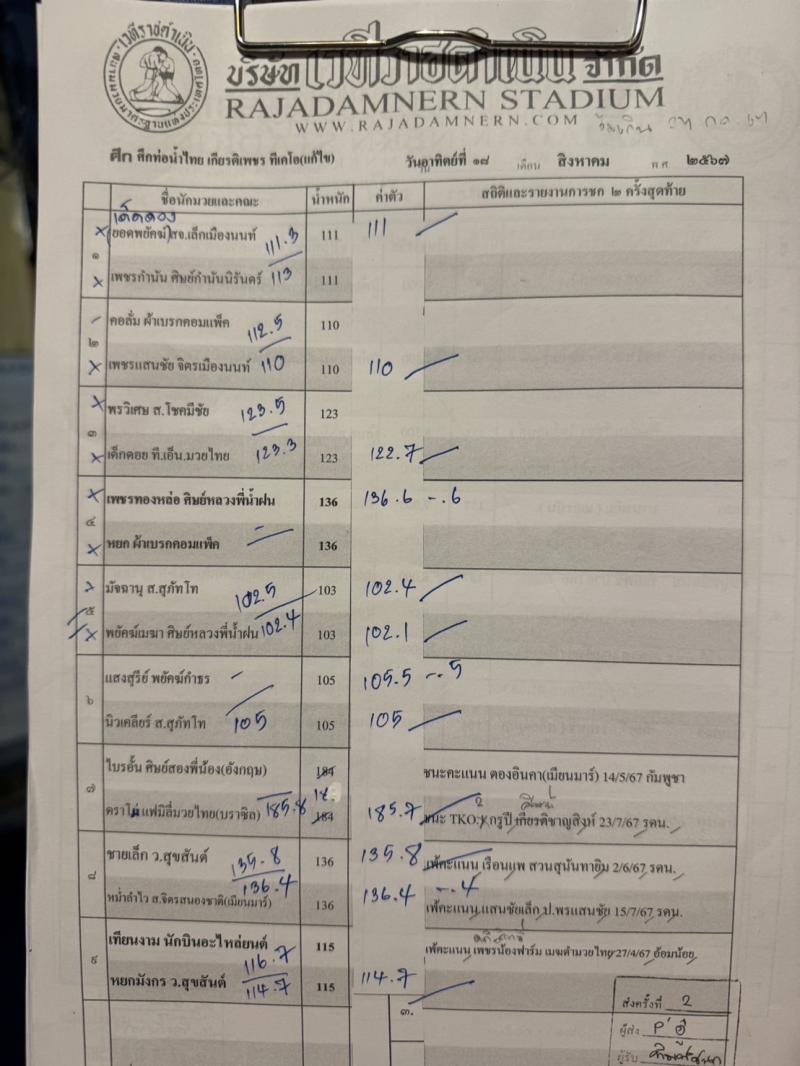 เวทีราชดำเนิน
บริษัท เวทีราชดำเนิน จำกัด
RAJADAMNERN STADIUM
WWW.RAJADAMNERN.COM
ศึก ศึกท่อน้ำไทย เกียรติเพชร ทีเคโอ(แก้ไข) วันอาทิตย์ที่ ๑๘ เดือน สิงหาคม พ.ศ. ๒๕๖๗
ชื่อนักมวยและคณะ น้ำหนัก ค่าตัว สถิติและรายงานการชก ๒ ครั้งสุดท้าย
เด็ดดวง
๑ ยอดพยัคฆ์ สจ.เล็กเมืองนนท์ 111.3 111 111
เพชรกำนัน ศิษย์กำนันนิรันดร์ 113 111
๒ คอลั่ม ผ้าเบรกคอมแพ็ค 112.5 110
เพชรแสนชัย จิตรเมืองนนท์ 110 110 110
๓ พรวิเศษ ส.โชคมีชัย 123.5 123
เด็กดอย ที.เอ็น.มวยไทย 123.3 123 122.7
๔ เพชรทองหล่อ ศิษย์หลวงพี่น้ำฝน 136 136.6 -.6
หยก ผ้าเบรกคอมแพ็ค 136
๕ มัจฉานุ ส.สุภัทโท 102.5 103 102.4
พยัคฆ์เมฆา ศิษย์หลวงพี่น้ำฝน 102.4 103 102.1
๖ แสงสุรีย์ พยัคฆ์กำธร 105 105.5 -.5
นิวเคลียร์ ส.สุภัทโท 105 105 105
๗ ไบรอั้น ศิษย์สองพี่น้อง(อังกฤษ) 184 ชนะคะแนน ตองอินคา(เมียนมาร์) 14/5/67 กัมพูชา
แฟมิลี่มวยไทย(บราซิล) 185.8 184 185.7 ชนะ TKO. 2 กรูปี เกียรติชาญสิงห์ 23/7/67 รดน.
๘ ชายเล็ก ว.สุขสันต์ 135.8 136 135.8 แพ้คะแนน เรือนแพ สวนสุนันทายิม 2/6/67 รดน.
หม่ำลำไว ส.จิตรสนองชาติ(เมียนมาร์) 136.4 136 136.4 -.4 แพ้คะแนน แสนชัยเล็ก ป.พรแสนชัย 15/7/67 รดน.
๙ เทียนงาม นักบินอะไหล่ยนต์ 116.7 115 แพ้คะแนน เพชรน้องฟาร์ม เมฆดำมวยไทย 27/4/67 อ้อมน้อย
หยกมังกร ว.สุขสันต์ 114.7 115 114.7
๓.
ส่งครั้งที่ 2
ผู้ส่ง P'
ผู้รับ